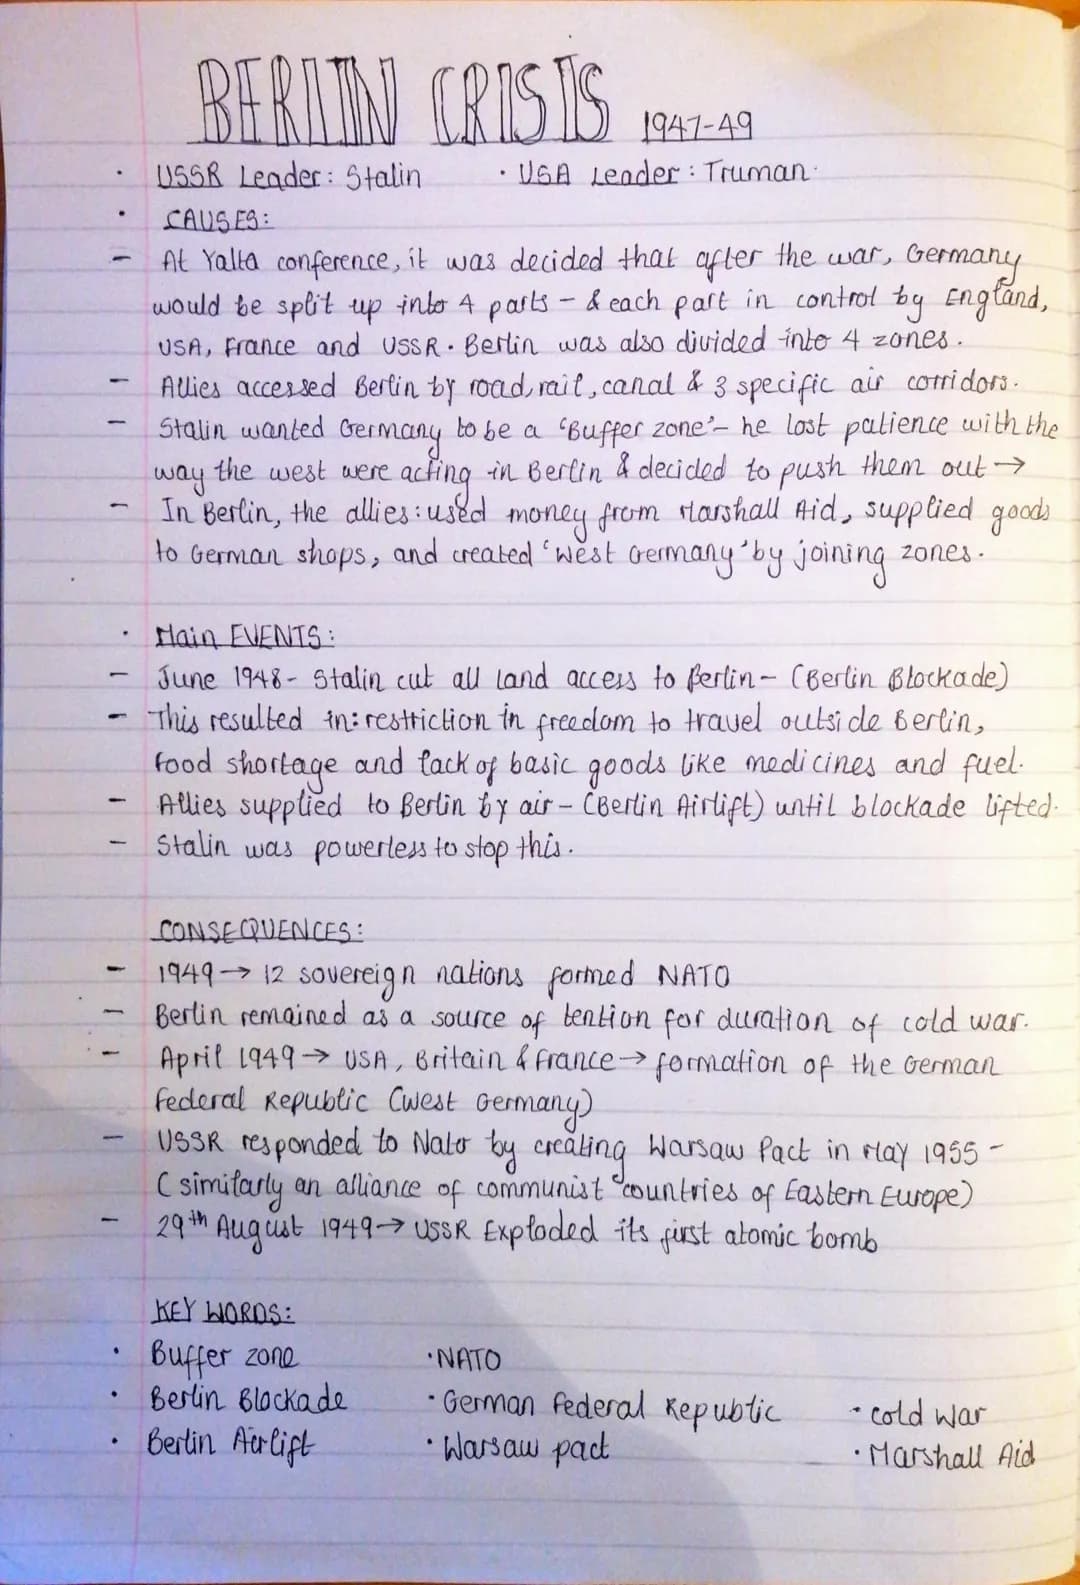 BERLIN CRISIS 1947-49
· USSR Leader: Stalin · USA Leader: Truman.
· CAUSES:
- At Yalta conference, it was decided that after the war, Germany
would be split up into 4 parts - & each part in control by England,
USA, France and USSR. Berlin was also divided into 4 zones.
- Allies accessed Berlin by road, rail, canal & 3 specific air corridors.
- Stalin wanted Germany to be a 'Buffer zone' - he lost patience with the
way the west were acting in Berlin & decided to push them out →
- In Berlin, the allies: used money from Marshall Aid, supplied goods
to German shops, and created 'West Germany' by joining zones.
· Main EVENTS:
- June 1948 - Stalin cut all land access to Berlin - (Berlin Blockade)
- This resulted in: restriction in freedom to travel outside Berlin,
food shortage and lack of basic goods like medicines and fuel.
- Allies supplied to Berlin by air - (Berlin Airlift) until blockade lifted.
- Stalin was powerless to stop this.
CONSEQUENCES:
- 1949 → 12 sovereign nations formed NATO
- Berlin remained as a source of tention for duration of cold war.
- April 1949 → USA, Britain & France → formation of the German
Federal Republic (West Germany)
- USSR responded to Nato by creating Warsaw Pact in May 1955 -
(similarly an alliance of communist countries of Eastern Europe)
- 29th August 1949 → USSR Exploded its first atomic bomb
KEY WORDS:
· Buffer zone · NATO
· Berlin Blockade · German Federal Republic · cold War
· Berlin Airlift · Warsaw pact · Marshall Aid